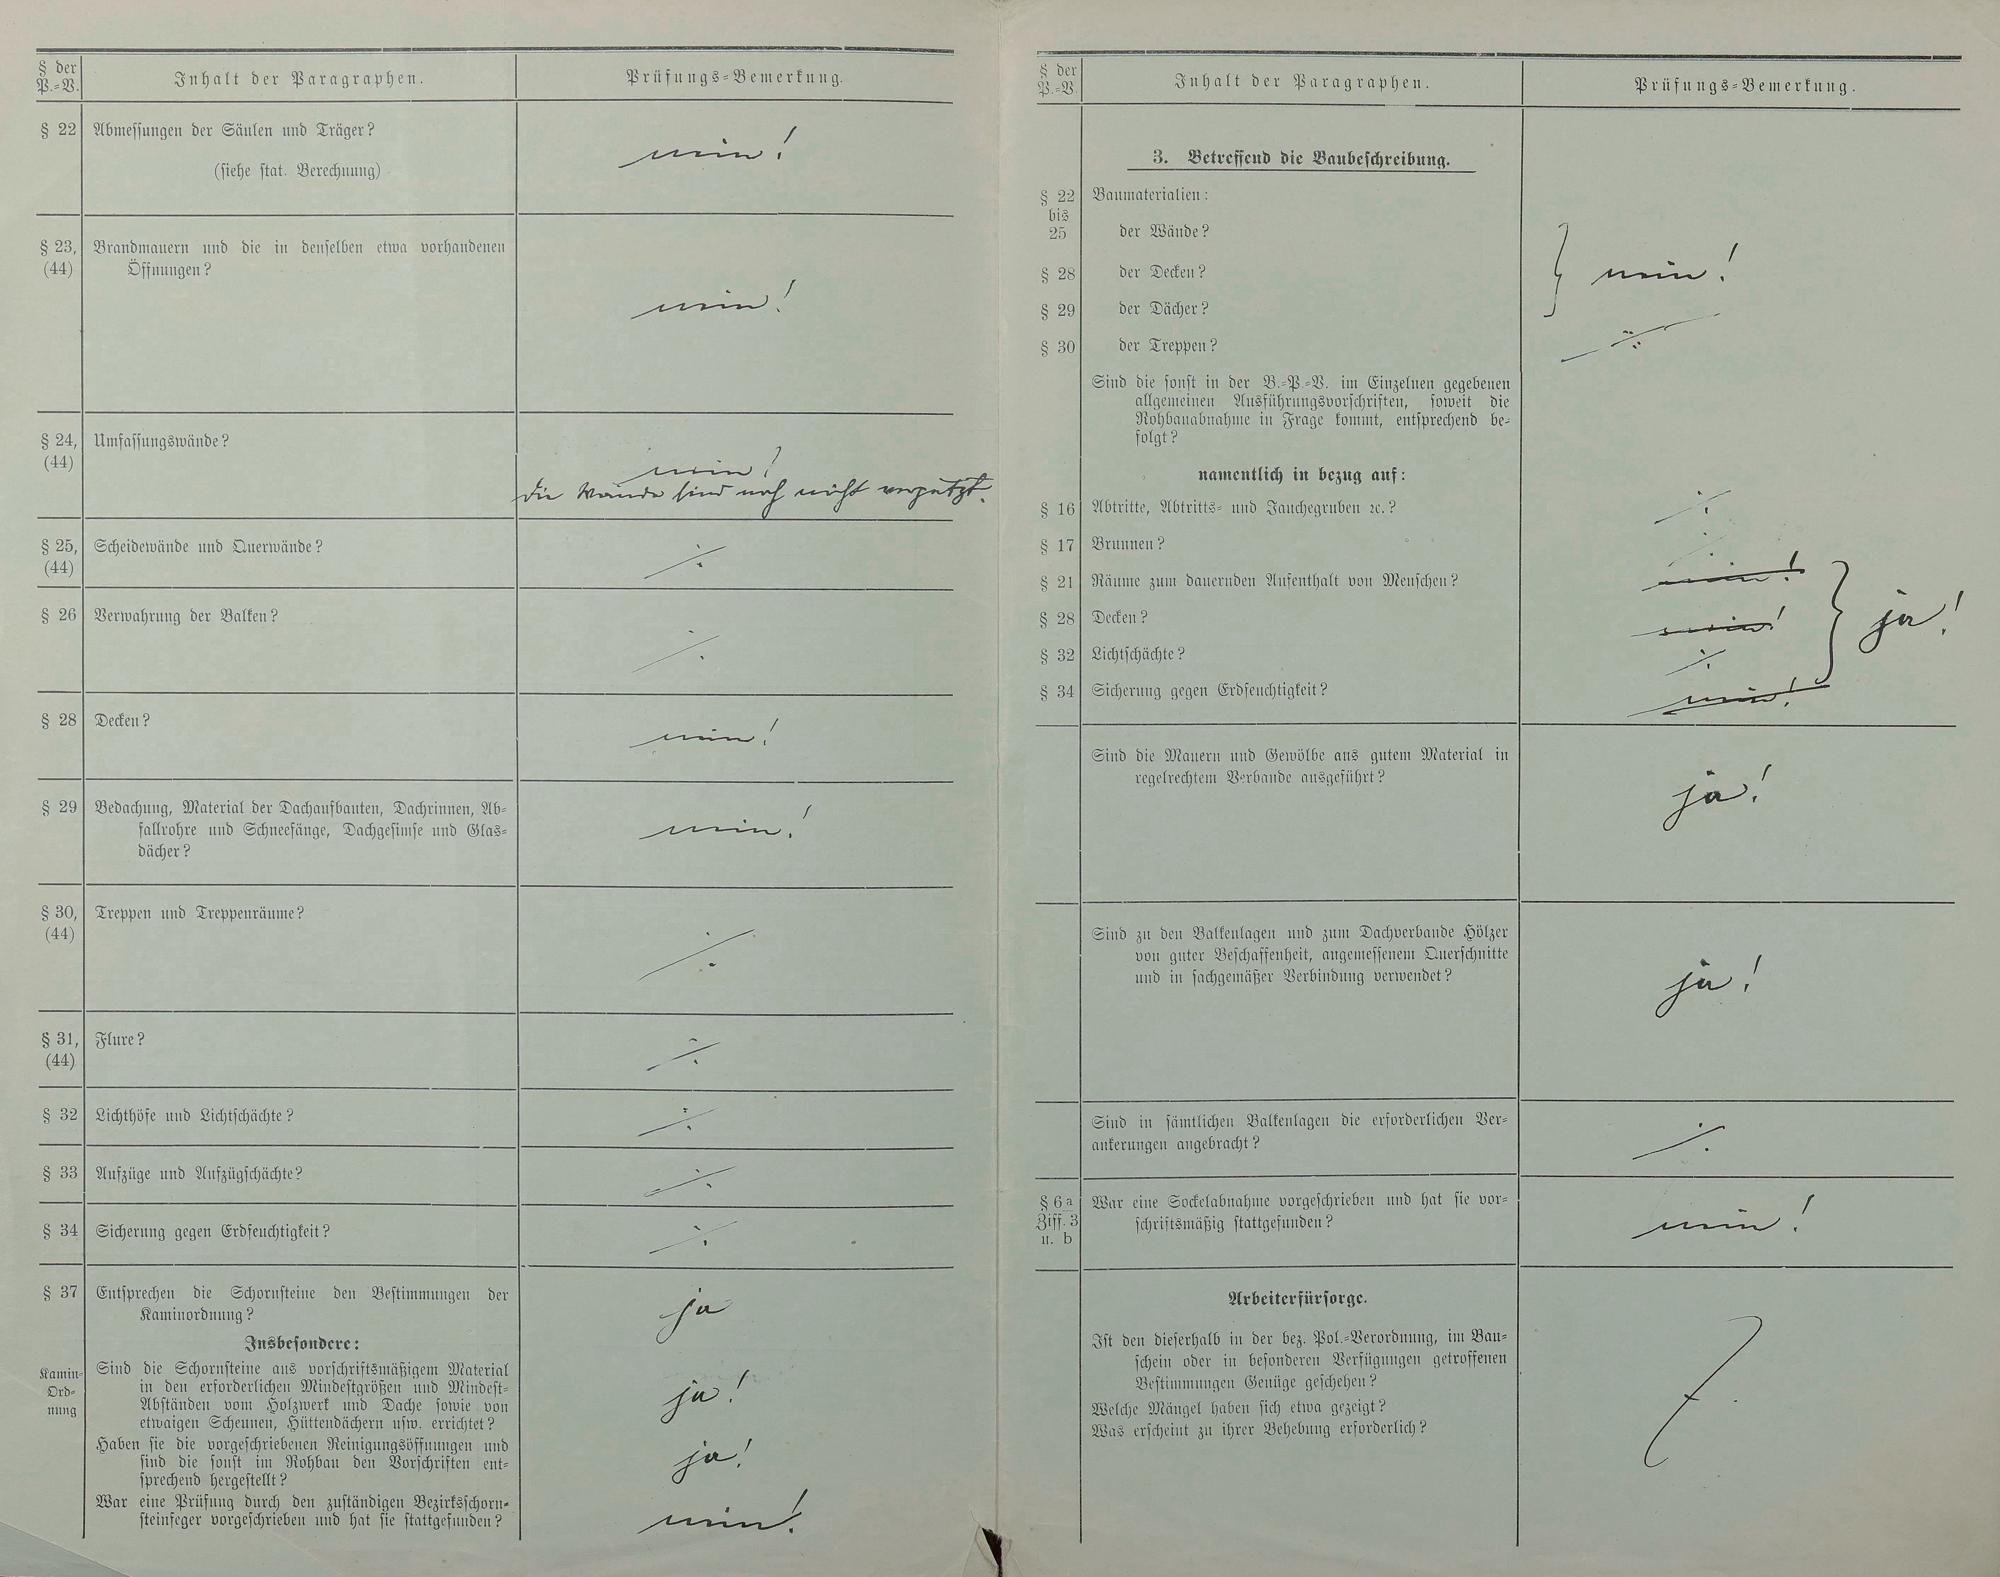 § der
P.=V.
Inhalt der Paragraphen.
Prüfungs=Bemerkung.
§ 22
Abmessungen der Säulen und Träger?
(siehe stat. Berechnung)
nein!
§ 23,
(44)
Brandmauern und die in denselben etwa vorhandenen
Öffnungen?
nein!
§ 24,
(44)
Umfassungswände?
nein!
die Wände sind noch nicht verputzt.
§ 25,
(44)
Scheidewände und Querwände?
÷
§ 26
Verwahrung der Balken?
÷
§ 28
Decken?
nein!
§ 29
Bedachung, Material der Dachaufbauten, Dachrinnen, Ab=
fallrohre und Schneefänge, Dachgesimse und Glas=
dächer?
nein!
§ 30,
(44)
Treppen und Treppenräume?
÷
§ 31,
(44)
Flure?
÷
§ 32
Lichthöfe und Lichtschächte?
÷
§ 33
Aufzüge und Aufzügschächte?
÷
§ 34
Sicherung gegen Erdfeuchtigkeit?
÷
§ 37
Entsprechen die Schornsteine den Bestimmungen der
Kaminordnung?
ja
Insbesondere:
Kamin=
Ord=
nung
Sind die Schornsteine aus vorschriftsmäßigem Material
in den erforderlichen Mindestgrößen und Mindest=
Abständen vom Holzwerk und Dache sowie von
etwaigen Scheunen, Hüttendächern usw. errichtet?
ja!
Haben sie die vorgeschriebenen Reinigungsöffnungen und
sind die sonst im Rohbau den Vorschriften ent=
sprechend hergestellt?
ja!
War eine Prüfung durch den zuständigen Bezirksschorn=
steinfeger vorgeschrieben und hat sie stattgefunden?
nein!
§ der
P.=V.
Inhalt der Paragraphen.
Prüfungs=Bemerkung.
3. Betreffend die Baubeschreibung.
§ 22
bis
25
Baumaterialien:
der Wände?
§ 28
der Decken?
nein!
§ 29
der Dächer?
§ 30
der Treppen?
÷
Sind die sonst in der B.=P.=V. im Einzelnen gegebenen
allgemeinen Ausführungsvorschriften, soweit die
Rohbauabnahme in Frage kommt, entsprechend be=
folgt?
namentlich in bezug auf:
§ 16
Abtritte, Abtritts= und Jauchegruben ꝛc.?
÷
§ 17
Brunnen?
÷
§ 21
Räume zum dauernden Aufenthalt von Menschen?
nein!
§ 28
Decken?
nein!
ja!
§ 32
Lichtschächte?
÷
§ 34
Sicherung gegen Erdfeuchtigkeit?
nein!
Sind die Mauern und Gewölbe aus gutem Material in
regelrechtem Verbande ausgeführt?
ja!
Sind zu den Balkenlagen und zum Dachverbande Hölzer
von guter Beschaffenheit, angemessenem Querschnitte
und in sachgemäßer Verbindung verwendet?
ja!
Sind in sämtlichen Balkenlagen die erforderlichen Ver=
ankerungen angebracht?
÷
§ 6a
Ziff. 3
u. b
War eine Sockelabnahme vorgeschrieben und hat sie vor=
schriftsmäßig stattgefunden?
nein!
Arbeiterfürsorge.
Ist den dieserhalb in der bez. Pol.=Verordnung, im Bau=
schein oder in besonderen Verfügungen getroffenen
Bestimmungen Genüge geschehen?
Welche Mängel haben sich etwa gezeigt?
Was erscheint zu ihrer Behebung erforderlich?